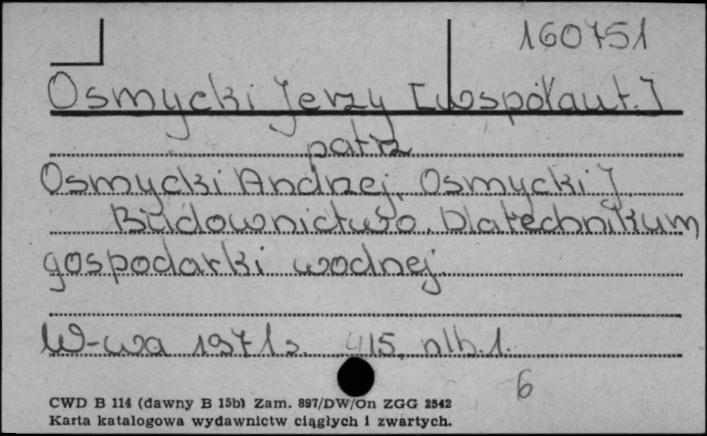 160751
Osmycki Jerzy [współaut.]
patrz
Osmycki Andrzej, Osmycki J.
Budownictwo. Dla technikum
gospodarki wodnej.
W-wa 1971 s. 415, nlb. 1.
6
CWD B 114 (dawny B 15b) Zam. 897/DW/On ZGG 2542
Karta katalogowa wydawnictw ciągłych i zwartych.